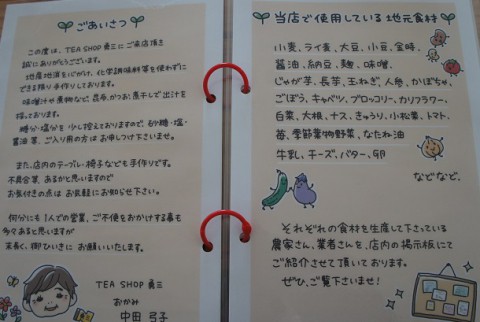 ごあいさつ
この度は、TEA SHOP 勇三にご来店頂き
誠にありがとうございます。
地産地消を心がけ、化学調味料等を使わずに
できる限り手作りしております。
味噌汁や煮物など、昆布、かつお、煮干しで出汁を
採っております。
糖分・塩分を少し控えておりますので、砂糖・塩・
醤油等、ご入用の方はお申しつけ下さいませ。
また、店内のテーブル・椅子なども手作りです。
不具合等、あるかと思いますので
お気付きの点はお気軽にお知らせ下さい。
何分にも1人での営業、ご不便をおかけする事も
多々あると思いますが
末長く、御ひいきにお願いいたします。
TEA SHOP 勇三
おかみ
中田 弓子
当店で使用している地元食材
小麦、ライ麦、大豆、小豆、金時、
醤油、納豆、麹、味噌、
じゃが芋、長芋、玉ねぎ、人参、かぼちゃ、
ごぼう、キャベツ、ブロッコリー、カリフラワー、
白菜、大根、ナス、きゅうり、小松菜、トマト、
苺、季節葉物野菜、なたね油
牛乳、チーズ、バター、卵
などなど。
それぞれの食材を生産して下さっている
農家さん、業者さんを、店内の掲示板にて
ご紹介させて頂いております。
ぜひ、ご覧下さいませ!